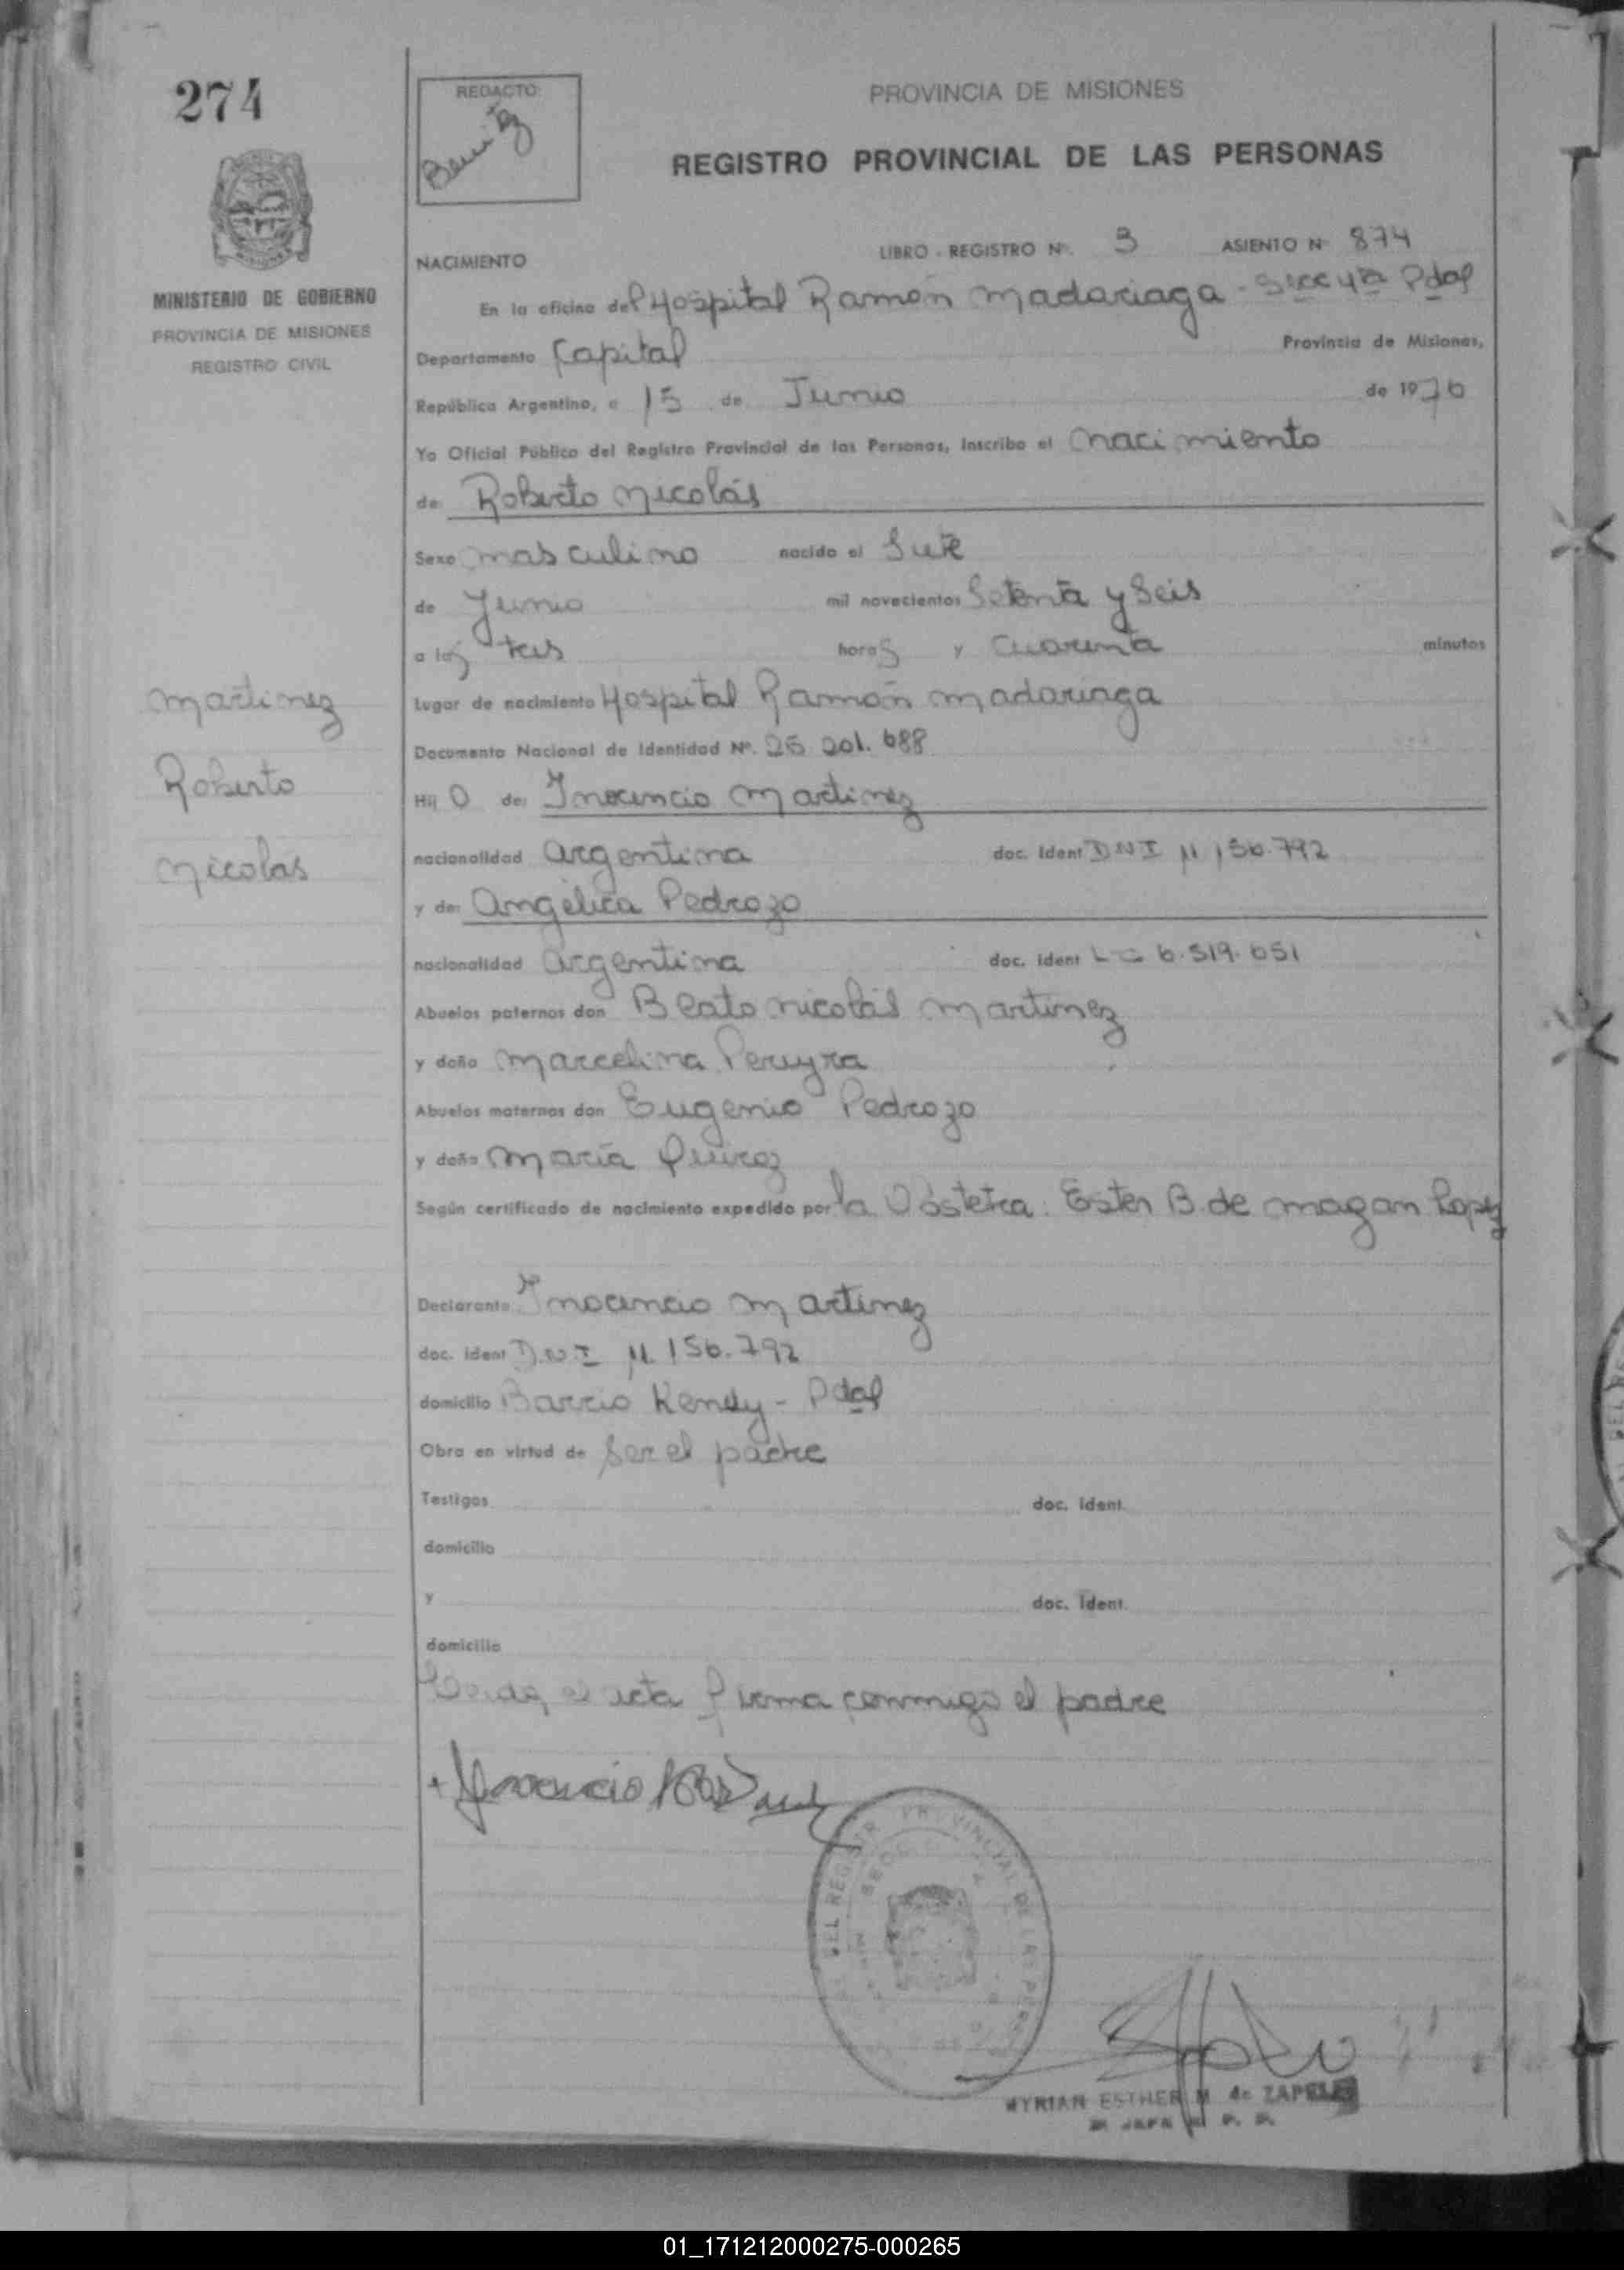 274
REDACTO:
Benitez
PROVINCIA DE MISIONES
REGISTRO PROVINCIAL DE LAS PERSONAS
MINISTERIO DE GOBIERNO
PROVINCIA DE MISIONES
REGISTRO CIVIL
NACIMIENTO LIBRO - REGISTRO Nº. 3 ASIENTO Nº 874
En la oficina del Hospital Ramón Madariaga - Secc 4ta Pdas
Departamento Capital Provincia de Misiones,
República Argentina, a 15 de Junio de 1976
Yo Oficial Público del Registro Provincial de las Personas, Inscribo el Nacimiento
de: Roberto Nicolás
Sexo masculino nacido el Siete
de Junio mil novecientos Setenta y Seis
a las tres horas y cuarenta minutos
Lugar de nacimiento Hospital Ramón Madariaga
Documento Nacional de Identidad Nº. 25 201.688
Hij o de: Inocencio Martinez
nacionalidad argentina doc. Ident DNI 11.156.792
y de: Angélica Pedrozo
nacionalidad argentina doc. ident LC 6.519.651
Abuelos paternos don Beato Nicolás Martinez
y doña Marcelina Pereyra
Abuelos maternos don Eugenio Pedrozo
y doña María Quiroz
Según certificado de nacimiento expedido por la Obstetra: Ester B. de Magan Lopez
Declarante Inocencio Martinez
doc. ident D.N.I 11.156.792
domicilio Barrio Kendy - Pdas
Obra en virtud de Ser el padre
Testigos doc. ident.
domicilio
y doc. ident.
domicilio
Leida el acta firma conmigo el padre
Martinez
Roberto
Nicolás
MYRIAN ESTHER M. de ZAPELLI
01_171212000275-000265